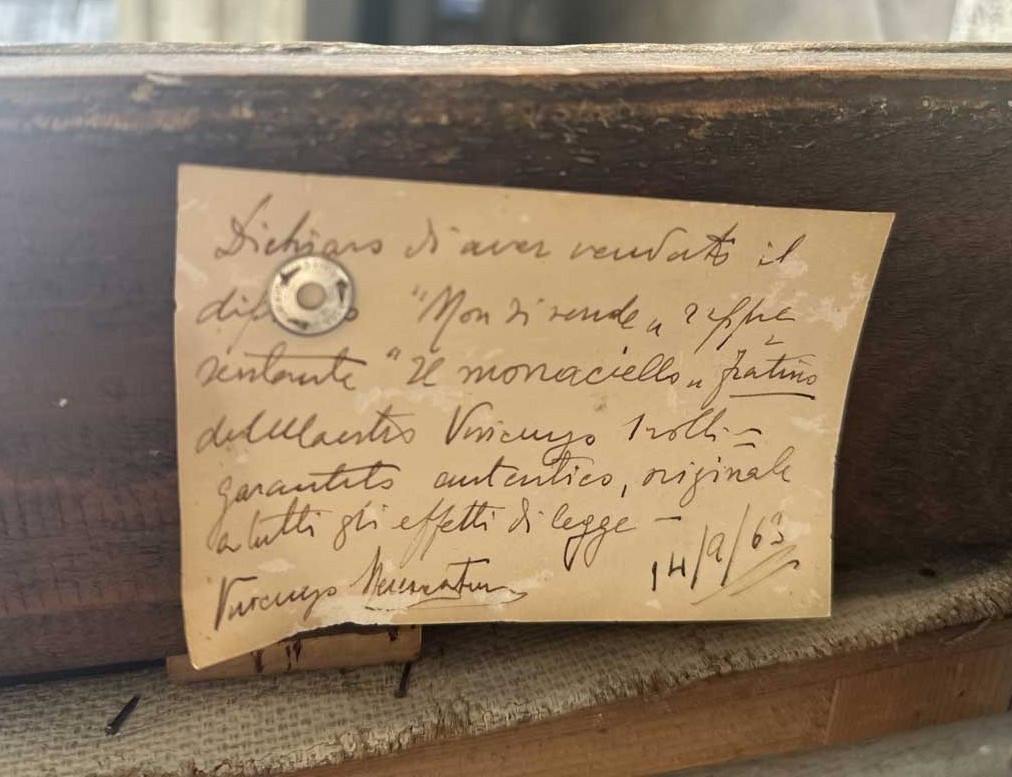 Dichiaro di aver venduto il
"Non si vende" rappre
sentante "Il monaciello" fratino
del Maestro Vincenzo Irolli =
garantito autentico, originale
a tutti gli effetti di legge —
Vincenzo 14/9/63